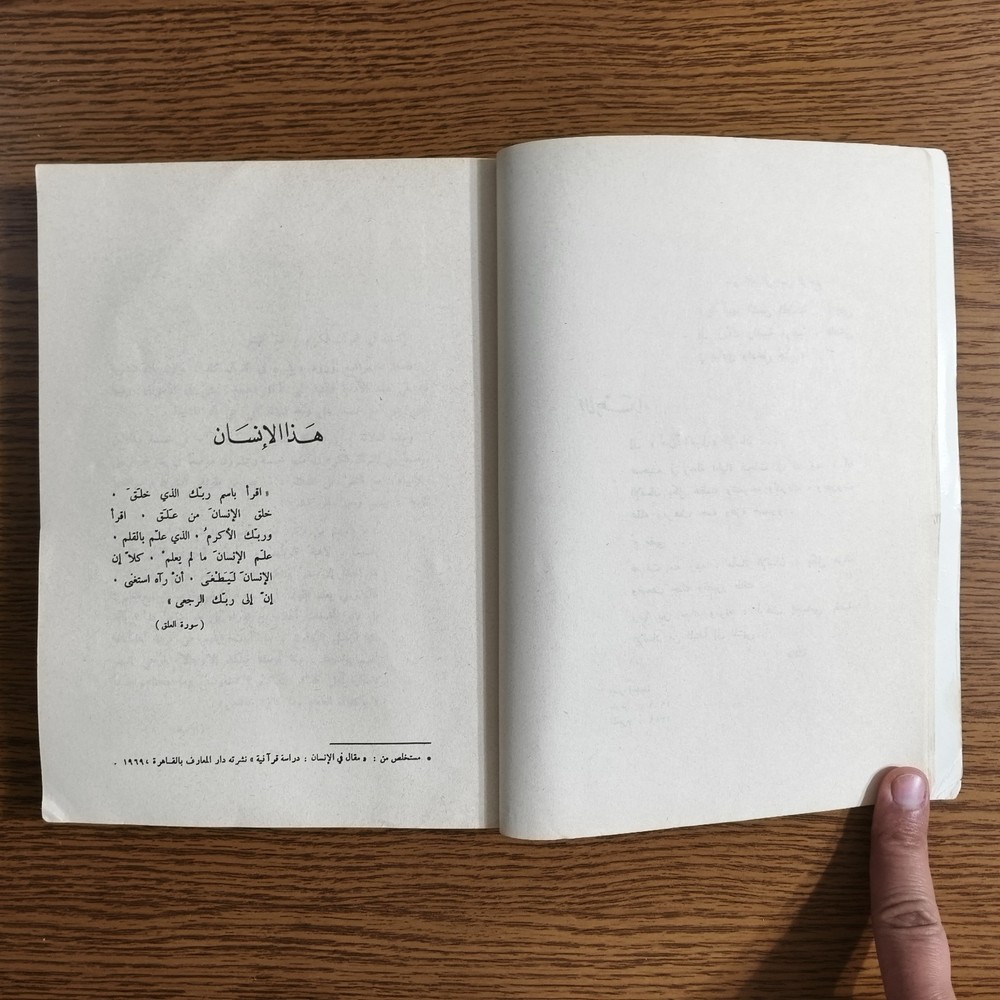 هَذا الإنسَان
« اقرأ باسم ربّك الذي خلَقَ .
خلق الإنسانَ من عَلَق . اقرأ
وربّك الأكرمُ . الذي علّم بالقلم .
علّم الإنسانَ ما لم يعلمْ . كلاّ إن
الإنسانَ ليَطْغَى . أنْ رآه استغنى .
إنّ إلى ربّك الرجعى »
( سورة العلق )
* مستخلص من : « مقال في الإنسان : دراسة قرآنية » نشرته دار المعارف بالقاهرة ، ١٩٦٩ .